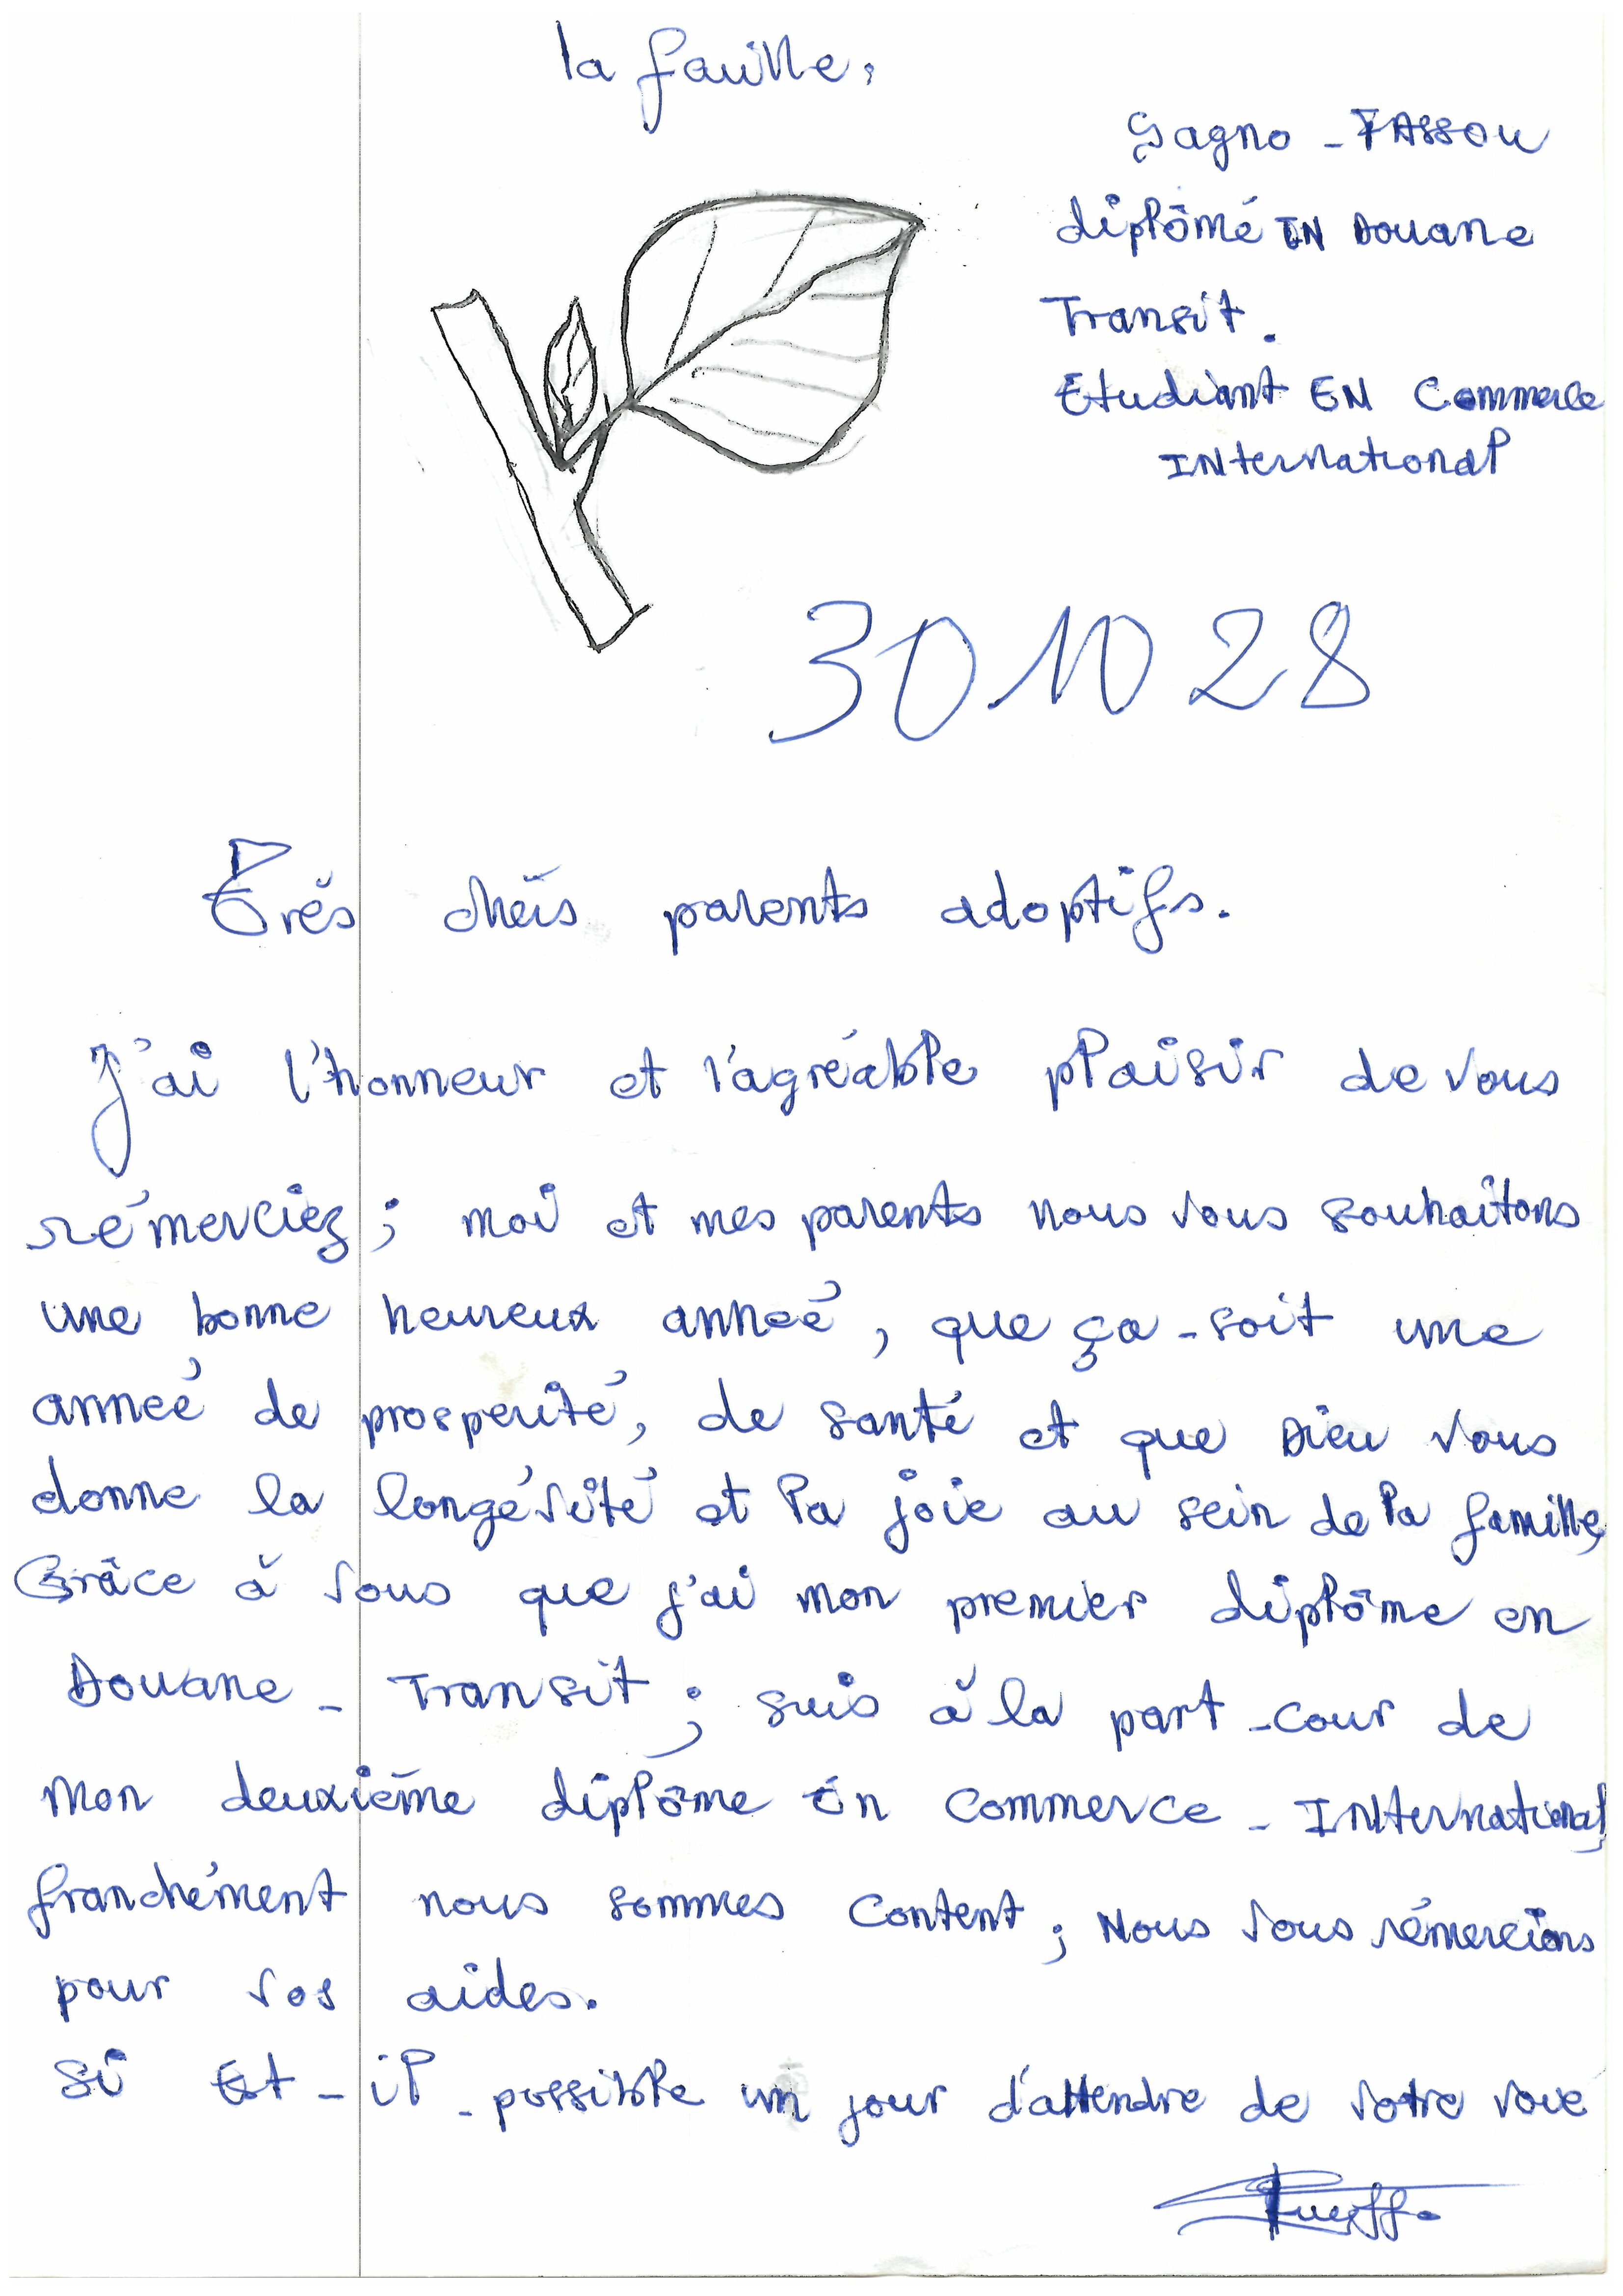 la fauille,
Gagno - FASSOU
diplômé IN Douane
Transit.
Etudiant EN Commerce
INternational
30 10 28
Très chers parents adoptifs.
J'ai l'honneur et l'agréable plaisir de vous
rémerciez ; moi et mes parents nous vous souhaitons
une bonne heureux anneé, que ça-soit une
anneé de prosperité, de santé et que Dieu vous
donne la longévité et la joie au sein de la famille,
Grâce à vous que j'ai mon premier diplôme en
Douane - Transit ; suis à la part-cour de
mon deuxième diplôme en commerce - INnternational
franchément nous sommes content ; Nous vous rémercions
pour vos aides.
Si Est-il-possible un jour d'attendre de votre voie